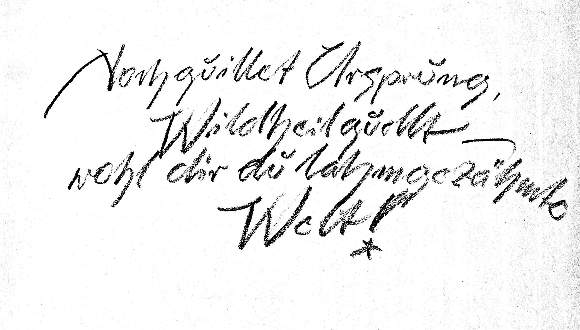 Noch quillet Ursprung,
Wildheil quellt —
wohl dir du lahmgezähmte
Welt!
*